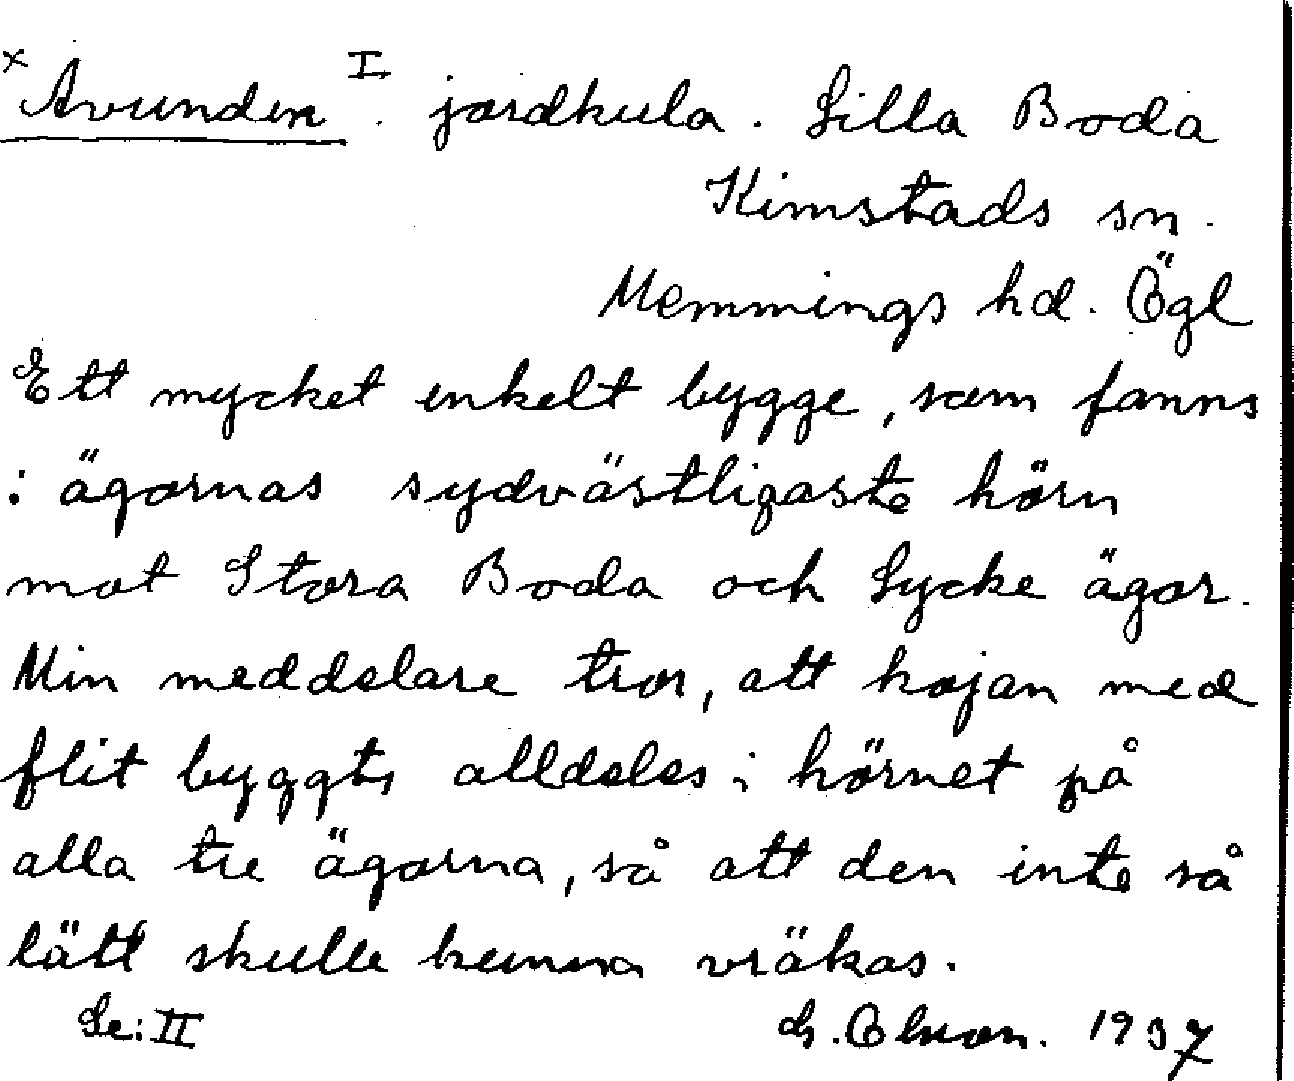 x Avunden I. jordkula. Lilla Boda
Kimstads sn.
Memmings hd. Ögl
Ett mycket enkelt bygge, som fanns
i ägornas sydvästligaste hörn
mot Stora Boda och Lycke ägor.
Min meddelare tror, att kojan med
flit byggts alldeles i hörnet på
alla tre ägorna, så att den inte så
lätt skulle kunna vräkas.
Se: II 1937